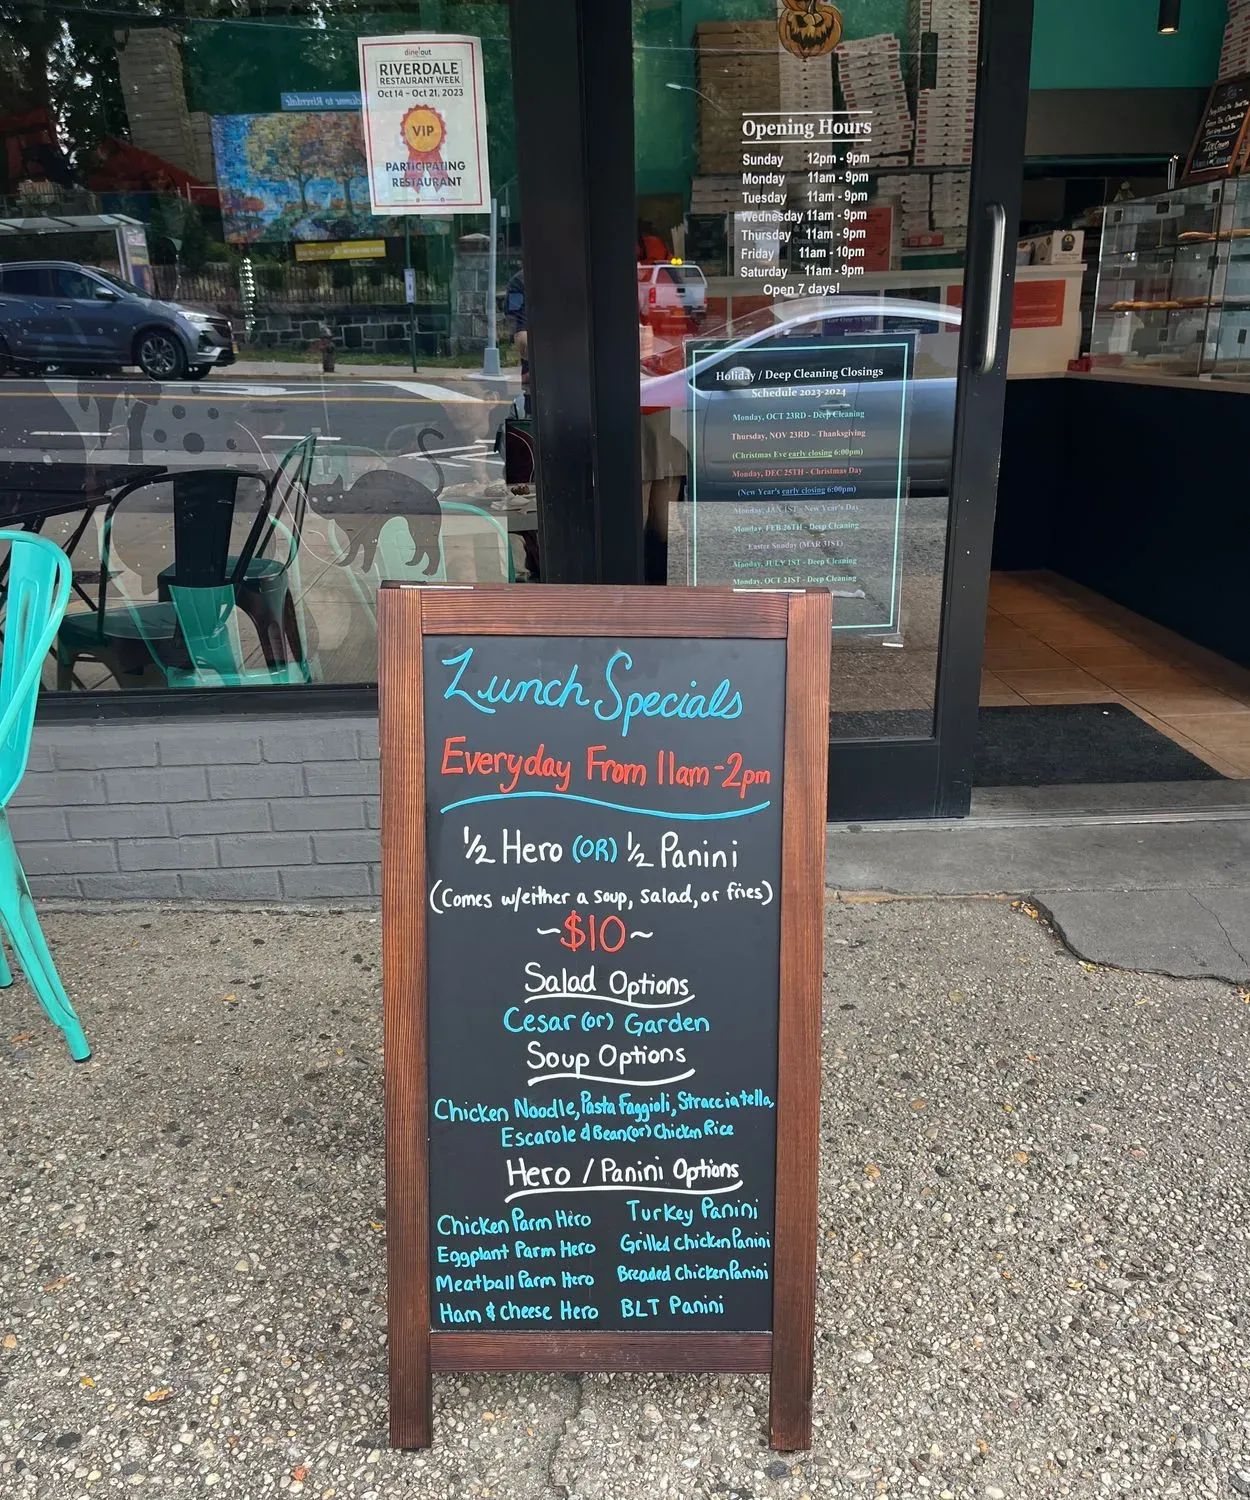 dine out
RIVERDALE
RESTAURANT WEEK
Oct 14 – Oct 21, 2023
VIP
PARTICIPATING
RESTAURANT
Opening Hours
Sunday 12pm - 9pm
Monday 11am - 9pm
Tuesday 11am - 9pm
Wednesday 11am - 9pm
Thursday 11am - 9pm
Friday 11am - 10pm
Saturday 11am - 9pm
Open 7 days!
Holiday / Deep Cleaning Closings
Schedule 2023-2024
Monday, OCT 23RD - Deep Cleaning
Thursday, NOV 23RD – Thanksgiving
(Christmas Eve early closing 6:00pm)
Monday, DEC 25TH - Christmas Day
(New Year's early closing 6:00pm)
Monday, JAN 1ST - New Year's Day
Monday, FEB 26TH - Deep Cleaning
Easter Sunday (MAR 31ST)
Monday, JULY 1ST - Deep Cleaning
Monday, OCT 21ST - Deep Cleaning
Lunch Specials
Everyday From 11am-2pm
½ Hero (OR) ½ Panini
(Comes w/either a soup, salad, or fries)
~$10~
Salad Options
Cesar (or) Garden
Soup Options
Chicken Noodle, Pasta Faggioli, Stracciatella,
Escarole & Bean (or) Chicken Rice
Hero / Panini Options
Chicken Parm Hero Turkey Panini
Eggplant Parm Hero Grilled Chicken Panini
Meatball Parm Hero Breaded Chicken Panini
Ham & Cheese Hero BLT Panini